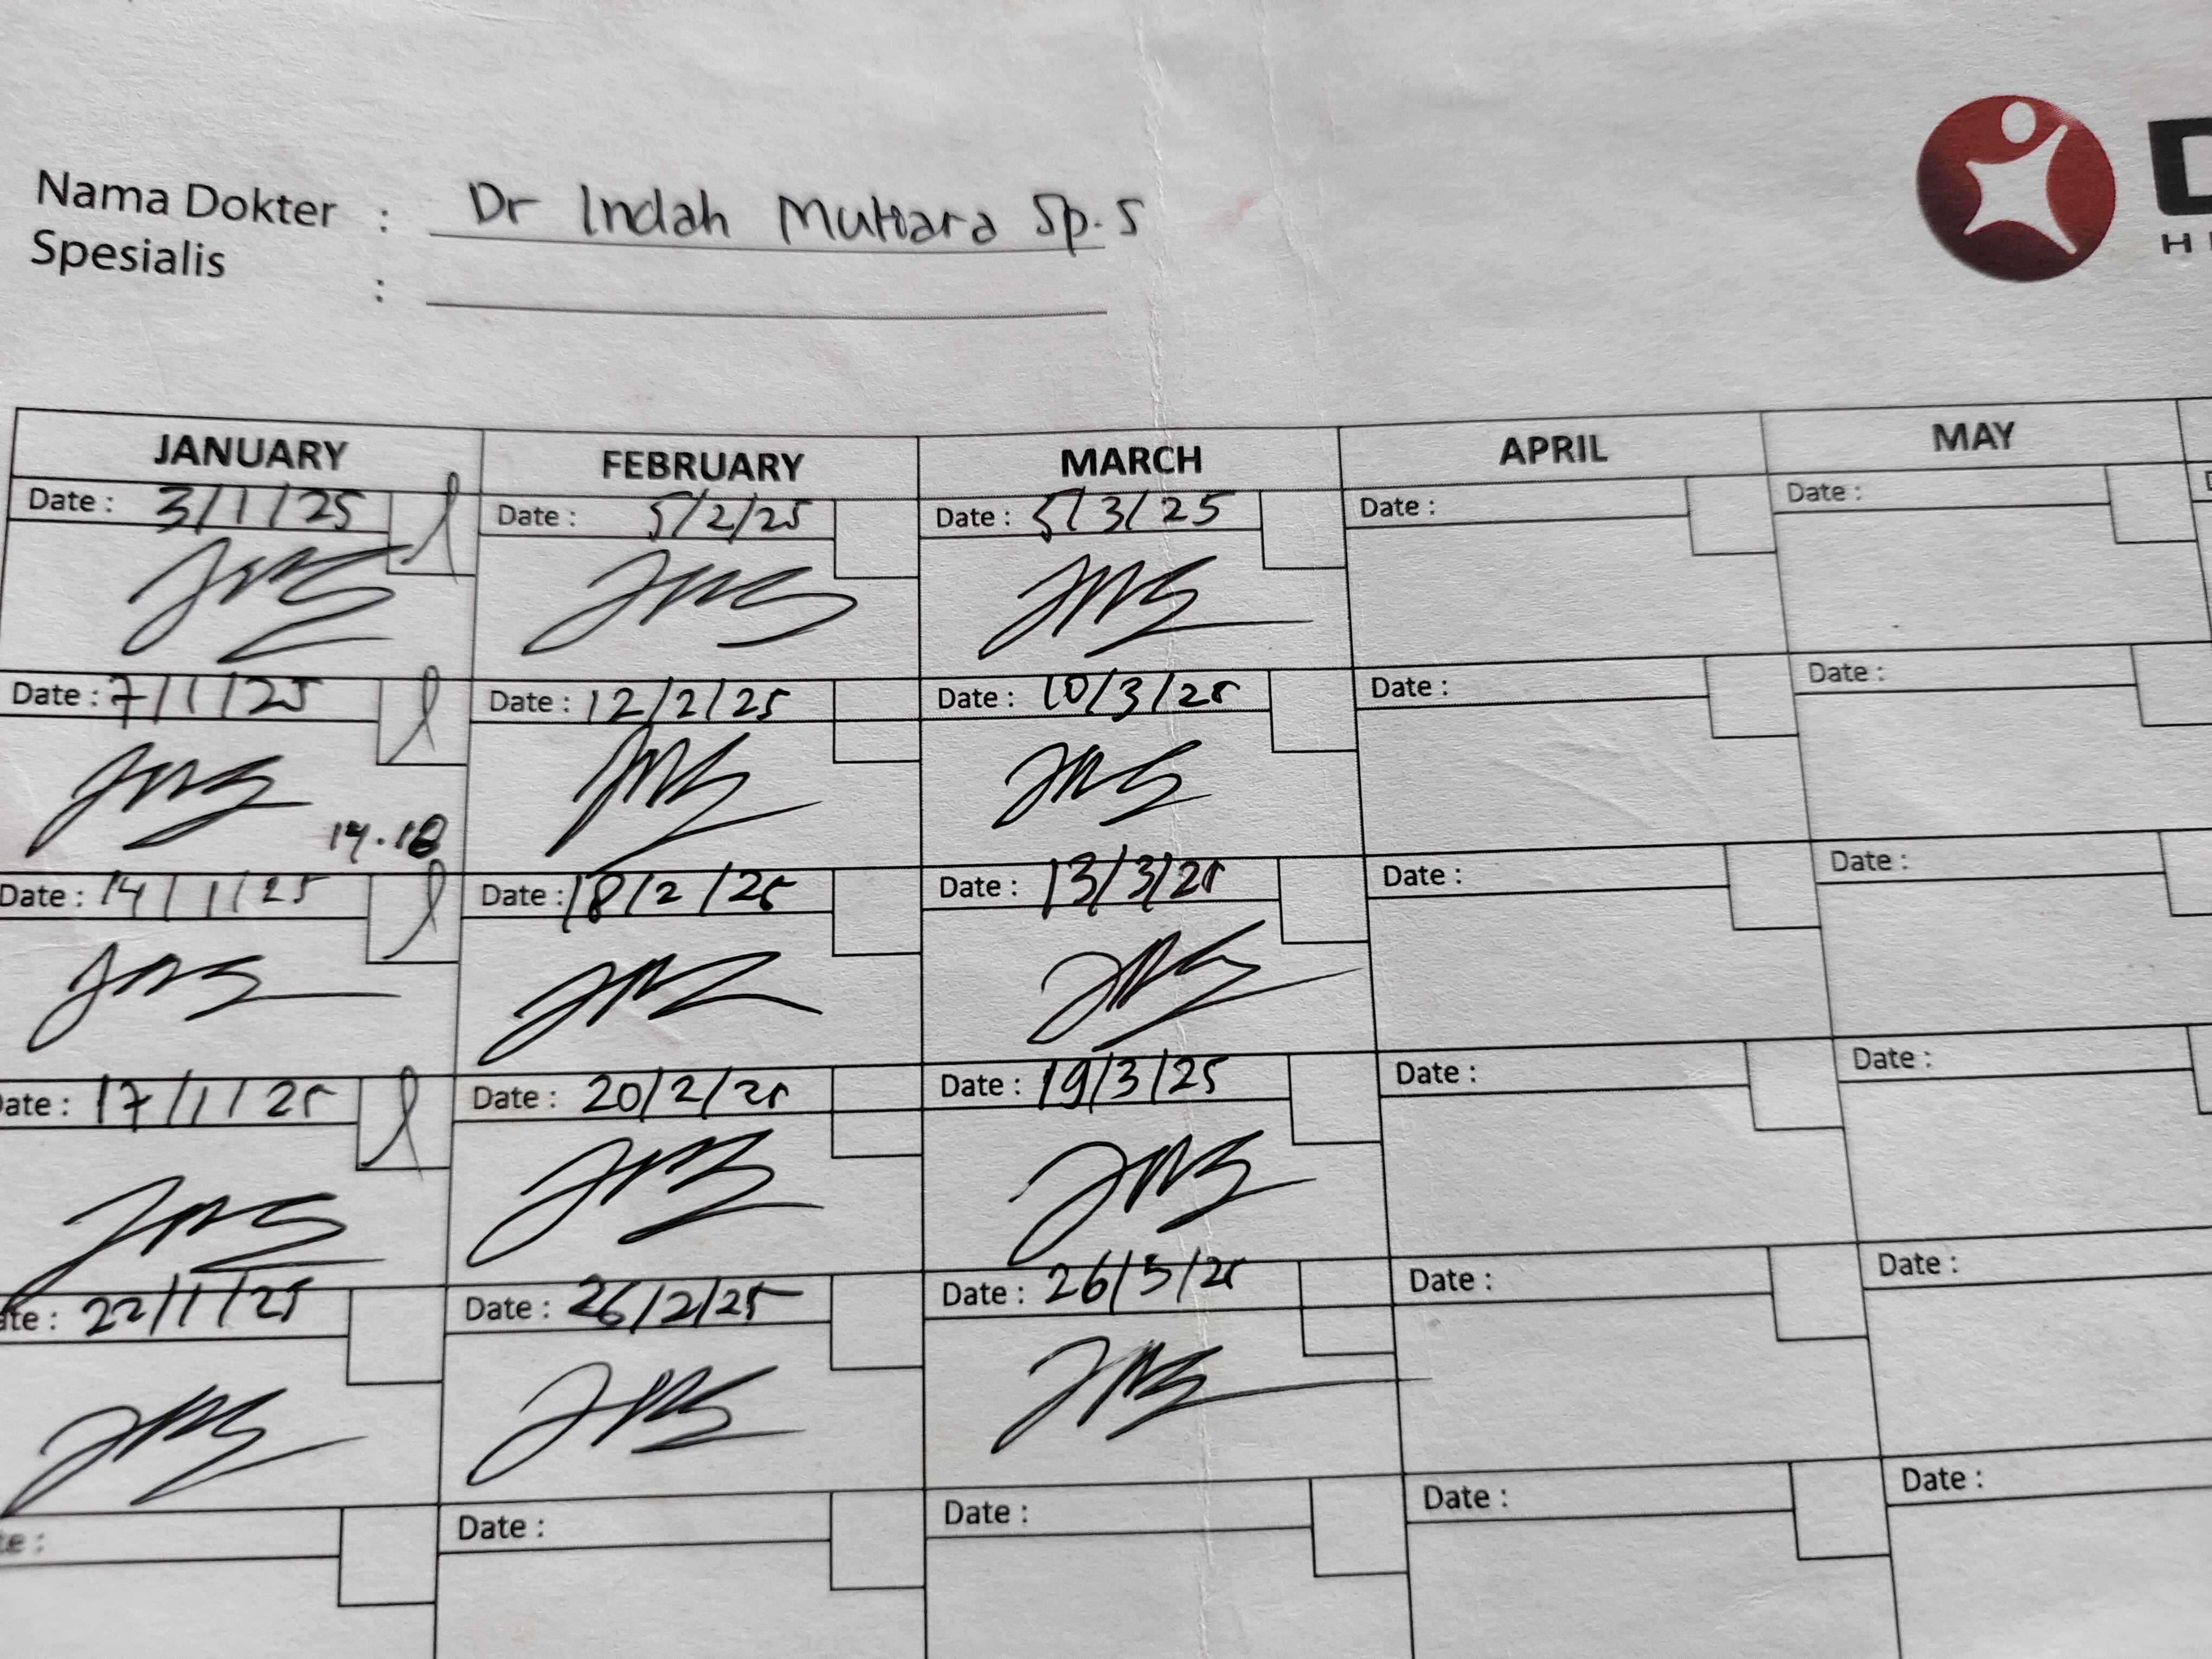 Nama Dokter : Dr Indah Mutiara Sp.S
Spesialis :
D
H
JANUARY FEBRUARY MARCH APRIL MAY
Date : 3/1/25 Date : 5/2/25 Date : 5/3/25 Date : Date :
Date : 7/1/25 Date : 12/2/25 Date : 10/3/25 Date : Date :
14.18
Date : 14/1/25 Date : 18/2/25 Date : 13/3/25 Date : Date :
ate : 17/1/25 Date : 20/2/25 Date : 19/3/25 Date : Date :
ate : 22/1/25 Date : 26/2/25 Date : 26/3/25 Date : Date :
te : Date : Date : Date : Date :